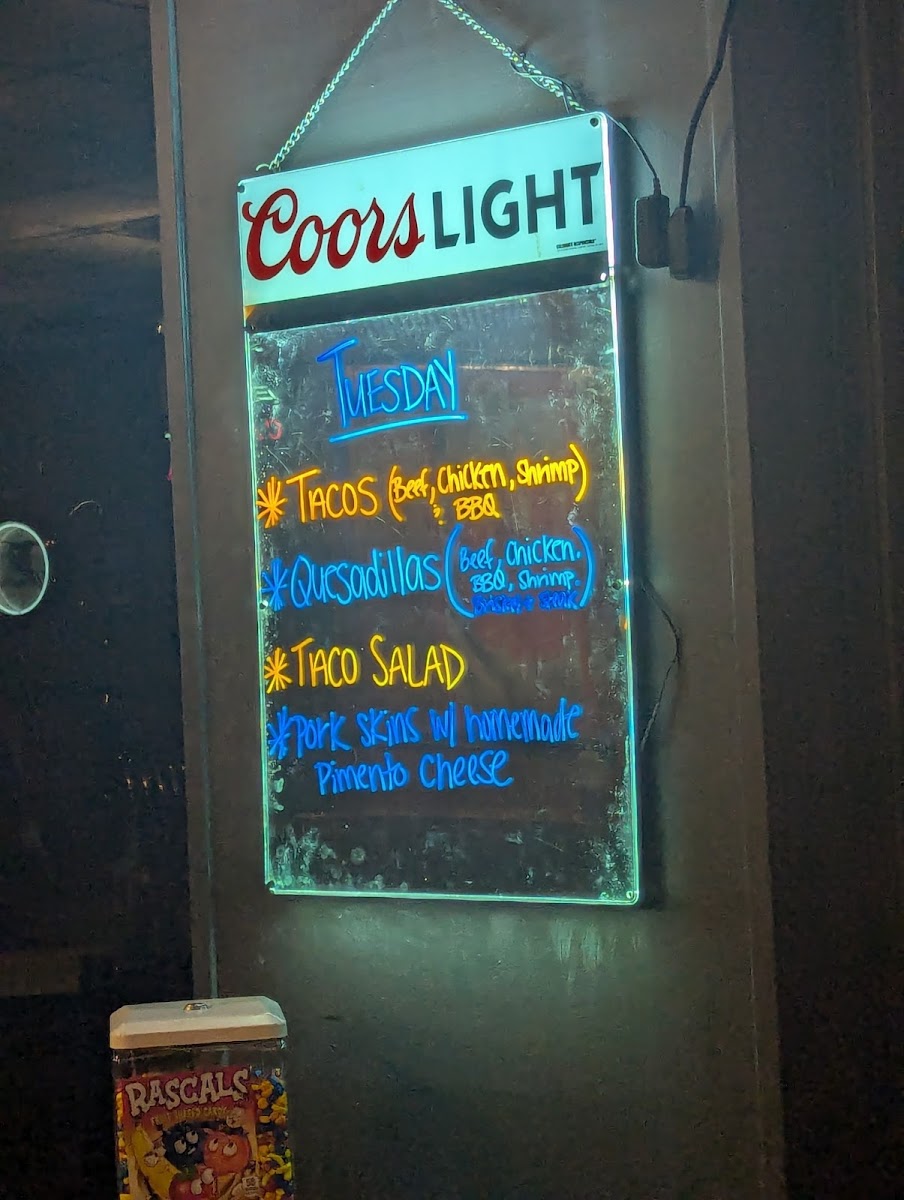 Coors LIGHT
TUESDAY
* TACOS (Beef, Chicken, Shrimp)
& BBQ
* Quesadillas (Beef, Chicken.
BBQ, Shrimp.
* TACO SALAD
* Pork skins w/ homemade
Pimento Cheese
RASCALS
FRUIT SHAPED CANDY